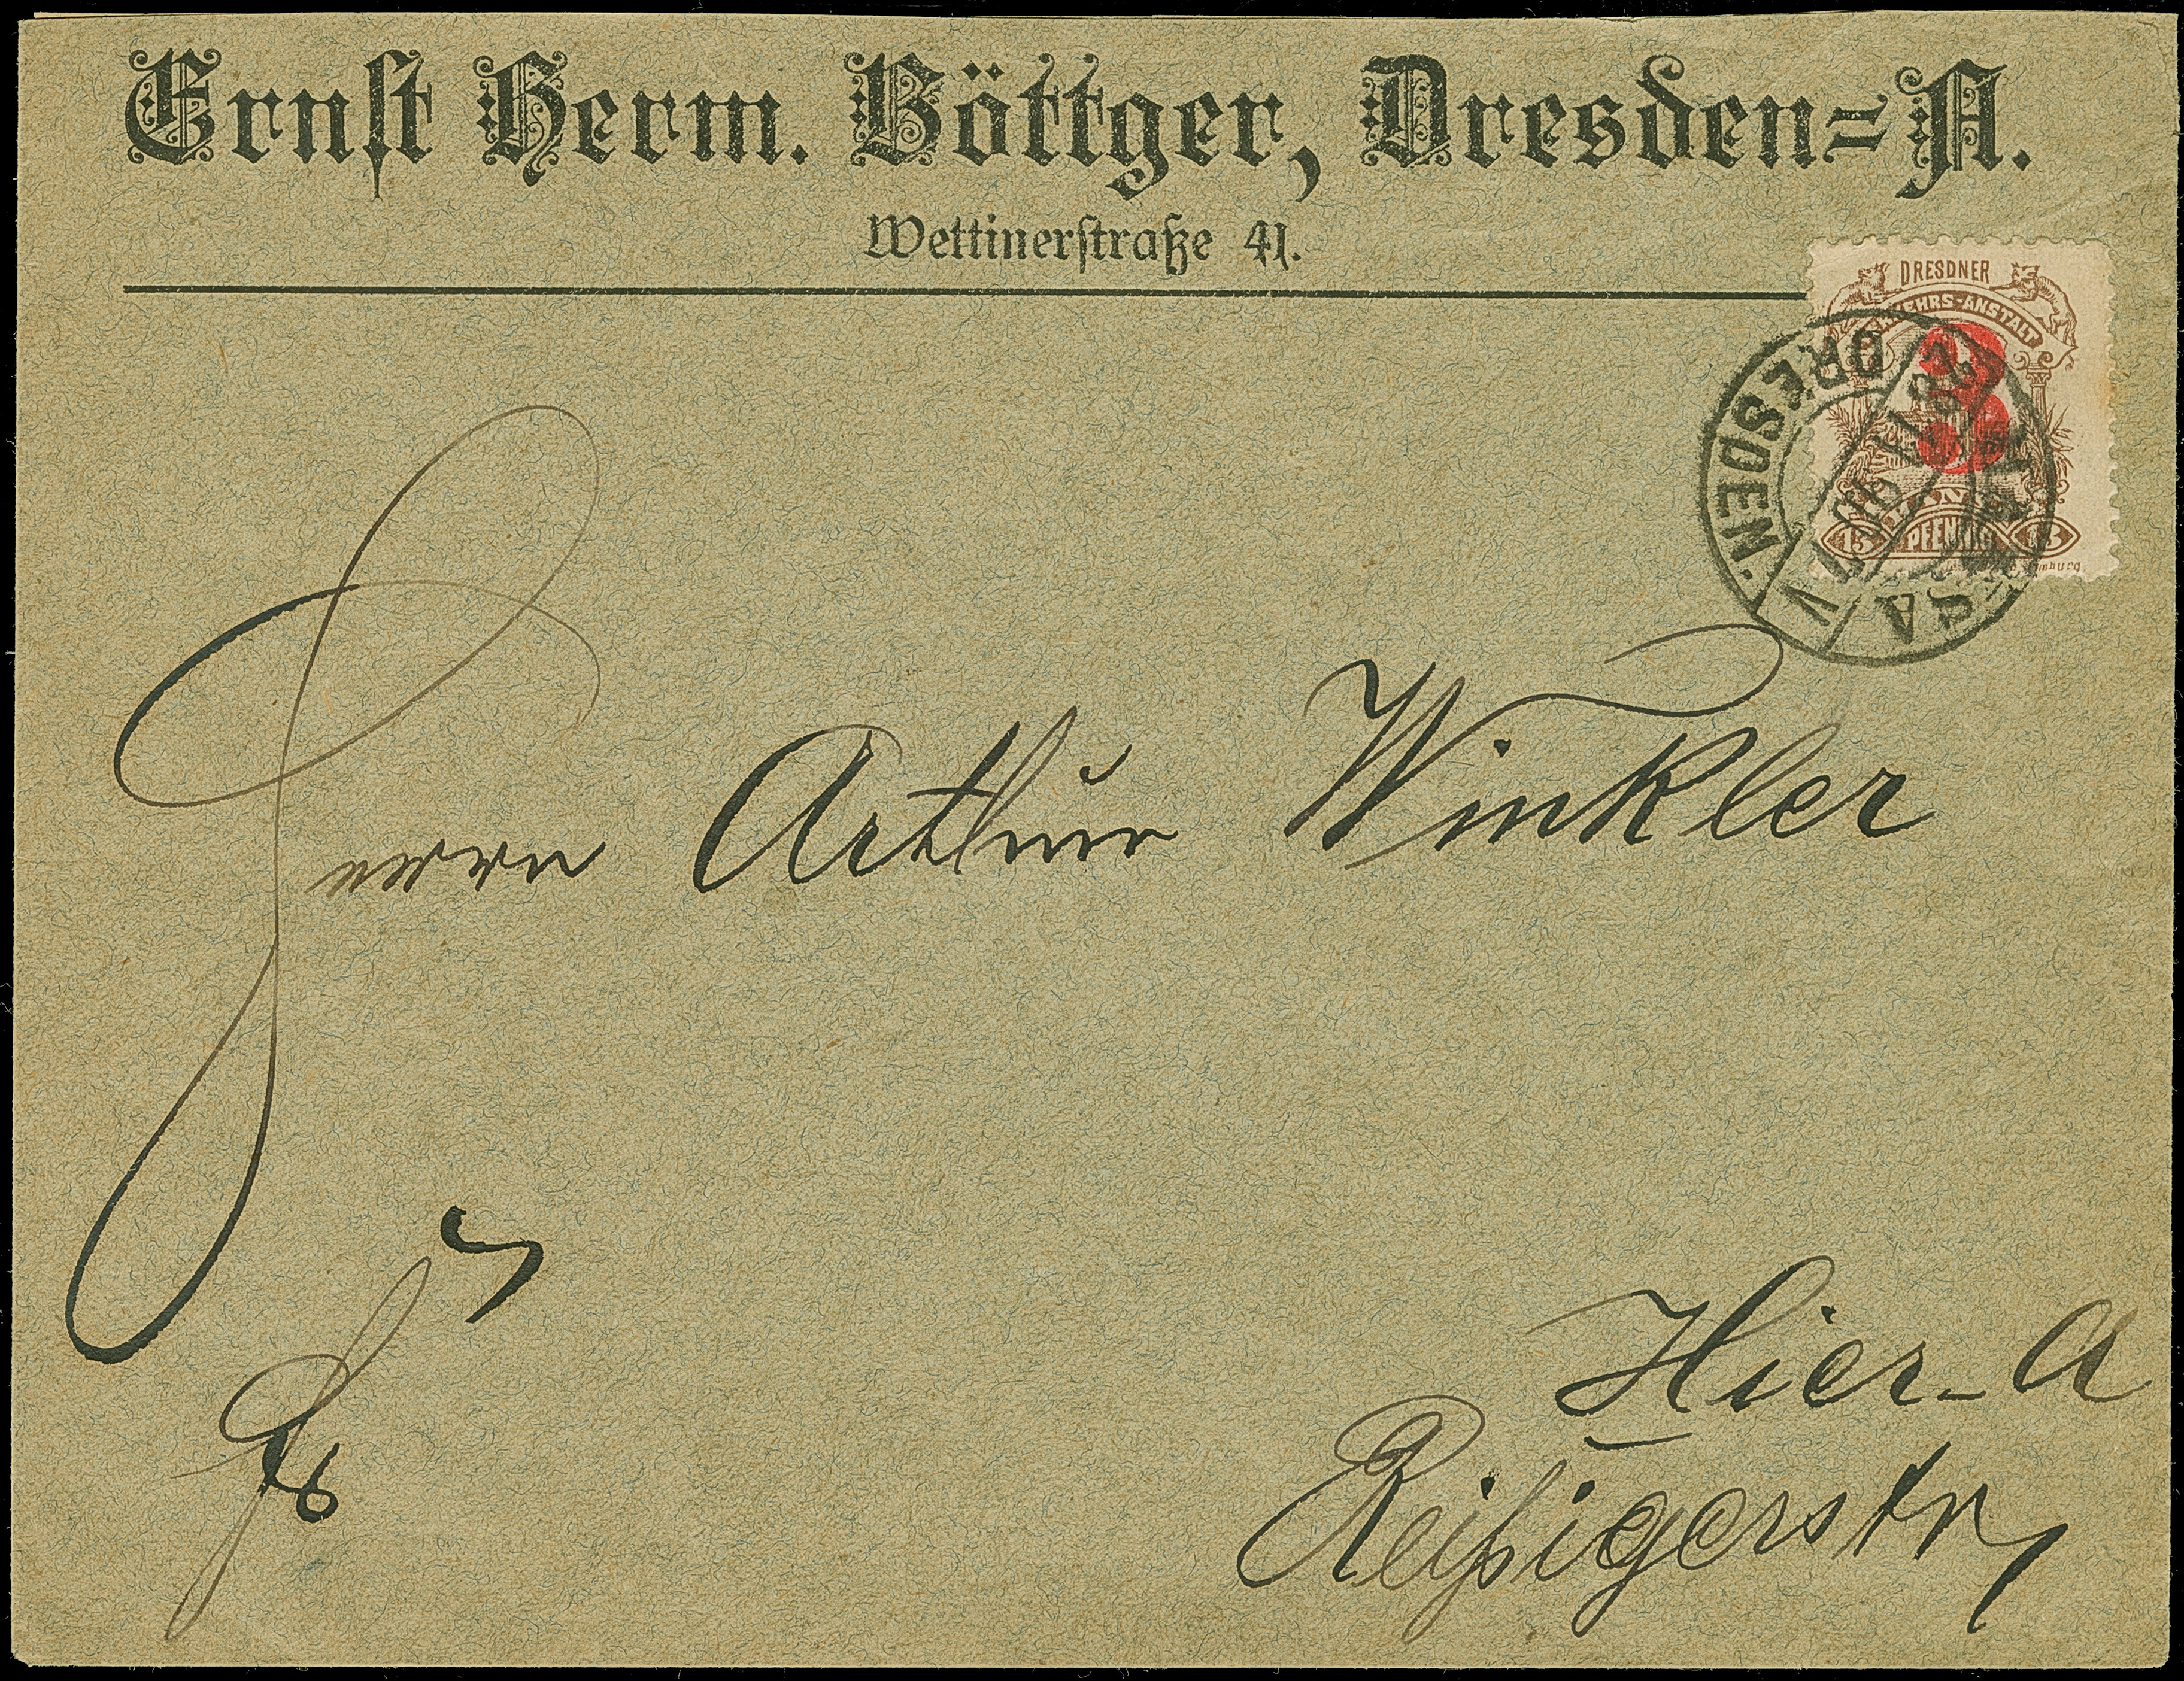 Ernst Herm. Böttger, Dresden-A.
Wettinerstraße 41.
DRESDNER
VERKEHRS-ANSTALT
3
HANSA
15 PFENNIG
DRESDEN.
V
Herrn Arthur Winkler
Hier-A
Reißigerstr